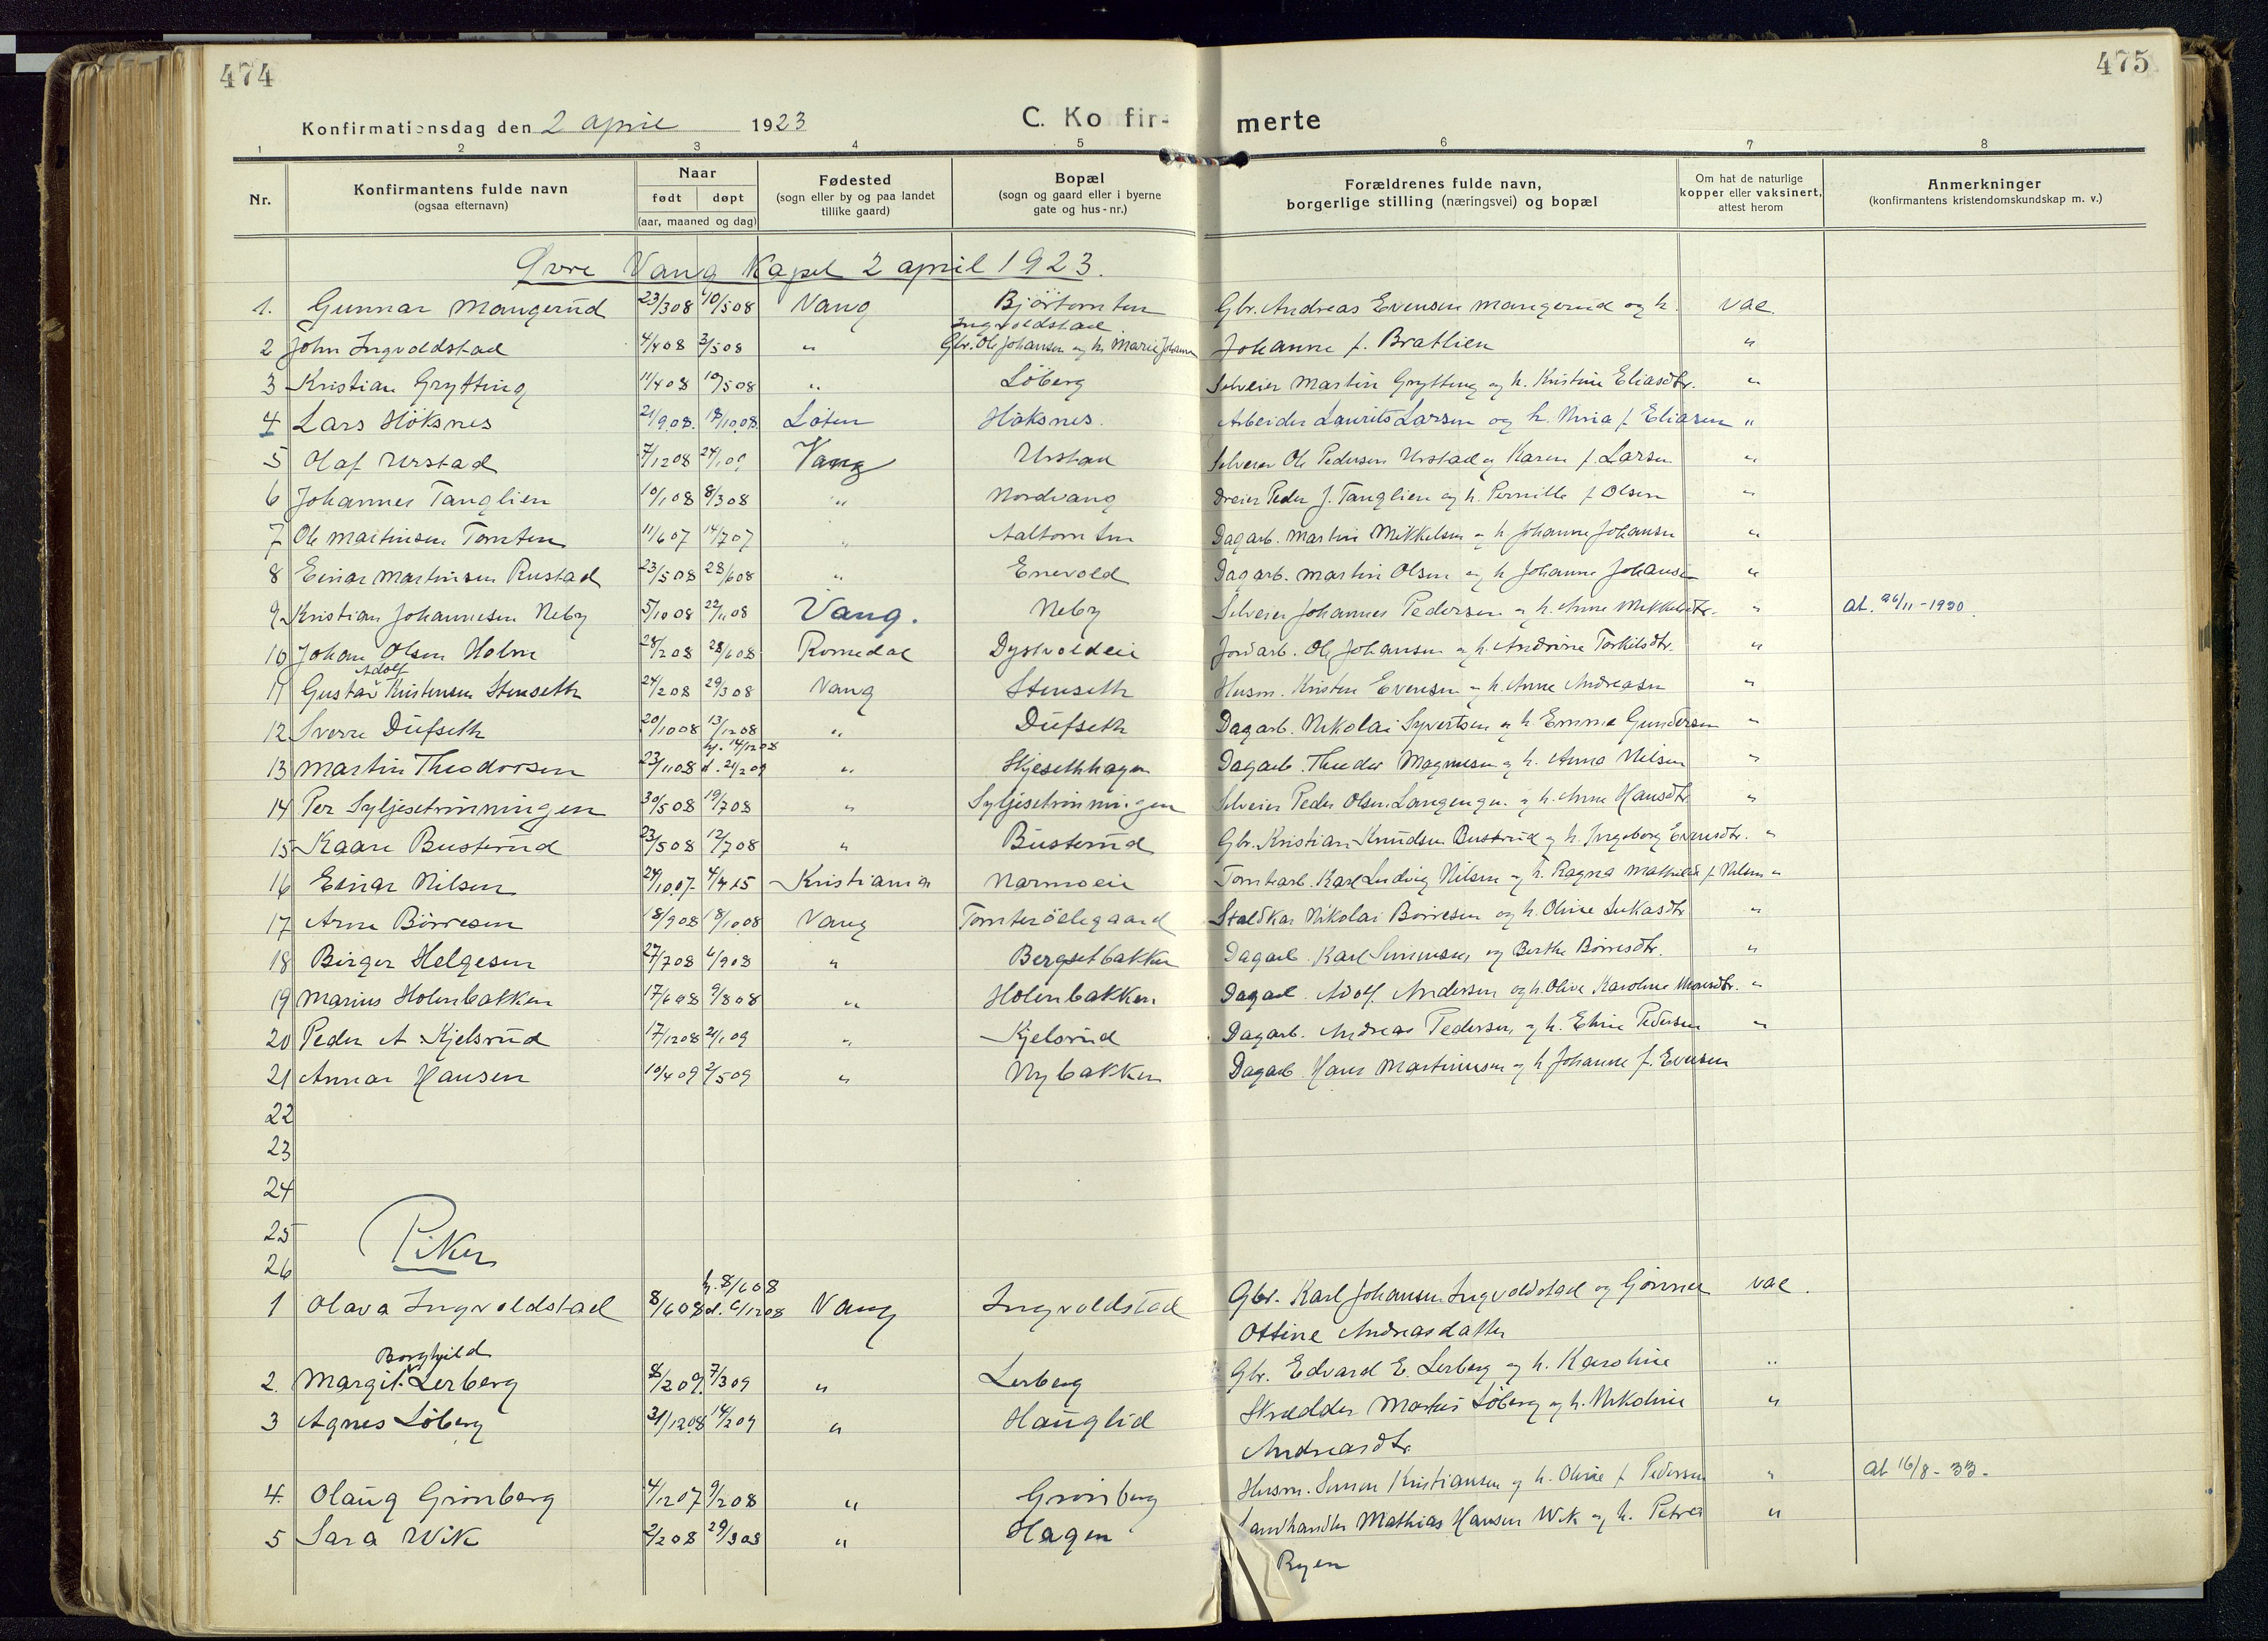 474
475
Konfirmationsdag den 2 april 1923
C. Konfir-
merte
1 2 3 4 5 6 7 8
Nr.
Konfirmantens fulde navn
(ogsaa efternavn)
Naar
født døpt
(aar, maaned og dag)
Fødested
(sogn eller by og paa landet
tillike gaard)
Bopæl
(sogn og gaard eller i byerne
gate og hus-nr.)
Forældrenes fulde navn,
borgerlige stilling (næringsvei) og bopæl
Om hat de naturlige
kopper eller vaksinert,
attest herom
Anmerkninger
(konfirmantens kristendomskundskap m. v.)
Øvre Vang Kapel 2 april 1923.
1. Gunnar Mangerud 23/308 10/508 Vang Björtomten Gbr. Andreas Evensen Mangerud og h. vac.
Ingvoldstad
2 John Ingvoldstad 4/408 3/508 " Gbr. Ole Johansen og h. Marie Johanne Johanne f. Bratlien "
3 Kristian Grytting 11/408 10/508 " Löberg Selveier Martin Grytting og h. Kristine Eliasdtr. "
4 Lars Höksnes 21/908. 18/1008. Löten Höksnes. Arbeider Laurits Larsen og h. f. Eliasen "
5 Olaf Urstad 7/1208 24/109 Vang Urstad Selveier Ole Pedersen Urstad og Karen f. Larsen "
6 Johannes Tanglien 10/108 8/308 " Nordvang Dreier Peder J. Tanglien og h. Pernille f Olsen "
7 Ole Martinsen Tomten 11/607 14/707 " Aaltomten Dagarb. Martin Mikkelsen og h Johanne Johansen "
8 Einar Martinsen Rustad 23/508 28/608 " Enevold Dagarb. Martin Olsen og h Johanne Johansen "
9 Kristian Johannesen Neby 5/1008 22/1108 Vang. Neby Selveier Johannes Pedersen og h. Anne Mikkelsdtr. " At. 26/11-1930.
10 Johan Olsen Holm 28/208 28/608 Romedal Dystvoldeie Jordarb. Ole Johansen og h. Andrine Torkilsdtr. "
Adolf
11 Gustav Kristensen Stenseth 24/208 29/308 Vang Stenseth Husm. Kristen Evensen og h. Anne Andreasen "
12 Sverre Dufseth 20/1008 13/1208 " Dufseth Dagarb. Nikolai Syvertsen og h. Emma Gundersen "
hj. 14/1208
13 Martin Theodorsen 23/1108 d. 21/209 " Skjesethhagen Dagarb. Theodor Magnusen og h. Anna Nilsen "
14 Per Syljesetrønningen 30/508 19/708 " Syljesetrønningen Selveier Peder Olsen Langengen og h. Anne Hansdtr. "
15 Kaare Busterud 23/508 12/708 " Busterud Gbr. Kristian Knudsen Busterud og h. Ingeborg Evensdtr. "
16 Einar Nilsen 24/1007 4/415 Kristiania Narmoeie Tomtearb. Karl Ludvig Nilsen og h. Ragna Mathilde f Nilsen "
17 Arne Börresen 18/908 18/1008 Vang Tomterödegaard Staldkar Nikolai Börresen og h. Oline Lukasdtr "
18 Birger Helgesen 27/708 6/908 " Bergsetbakken Dagarb. Karl Simensen og Berthe Börresdtr. "
19 Marius Holenbakken 17/608 9/808 " Holenbakken Dagarb. Adolf Andersen og h. Olive Karoline "
20 Peder A Kjelsrud 17/1208 21/109 " Kjelsrud Dagarb. Andreas Pedersen og h. Eline Pedersen "
21 Annar Hansen 10/409 2/509 " Nybakken Dagarb. Hans Martinusen og h Johanne f. Evensen
22
23
24
25
26
Piker
hj. 8/608
1 Olava Ingvoldstad 8/608 d. 6/1208 Vang Ingvoldstad Gbr. Karl Johansen Ingvoldstad og Gunnel vac.
Ottine Andreasdatter
Borghild
2. Margit Lerberg 8/209. 7/309 " Lerberg Gbr. Edvard E. Lerberg og h. Karoline "
3 Agnes Löberg 31/1208 14/209 " Hauglid Skrædder Martin Löberg og h. Nikoline "
Andreasdtr.
4. Olaug Grönberg 4/1207 9/208 " Grönberg Husm. Simen Kristiansen og h. Oline f Pedersen " at 16/8-33-
5 Sara Wik 2/208 29/308 " Hagen Landhandler Mathias Hansen Wik og h. Petrea "
Ryen